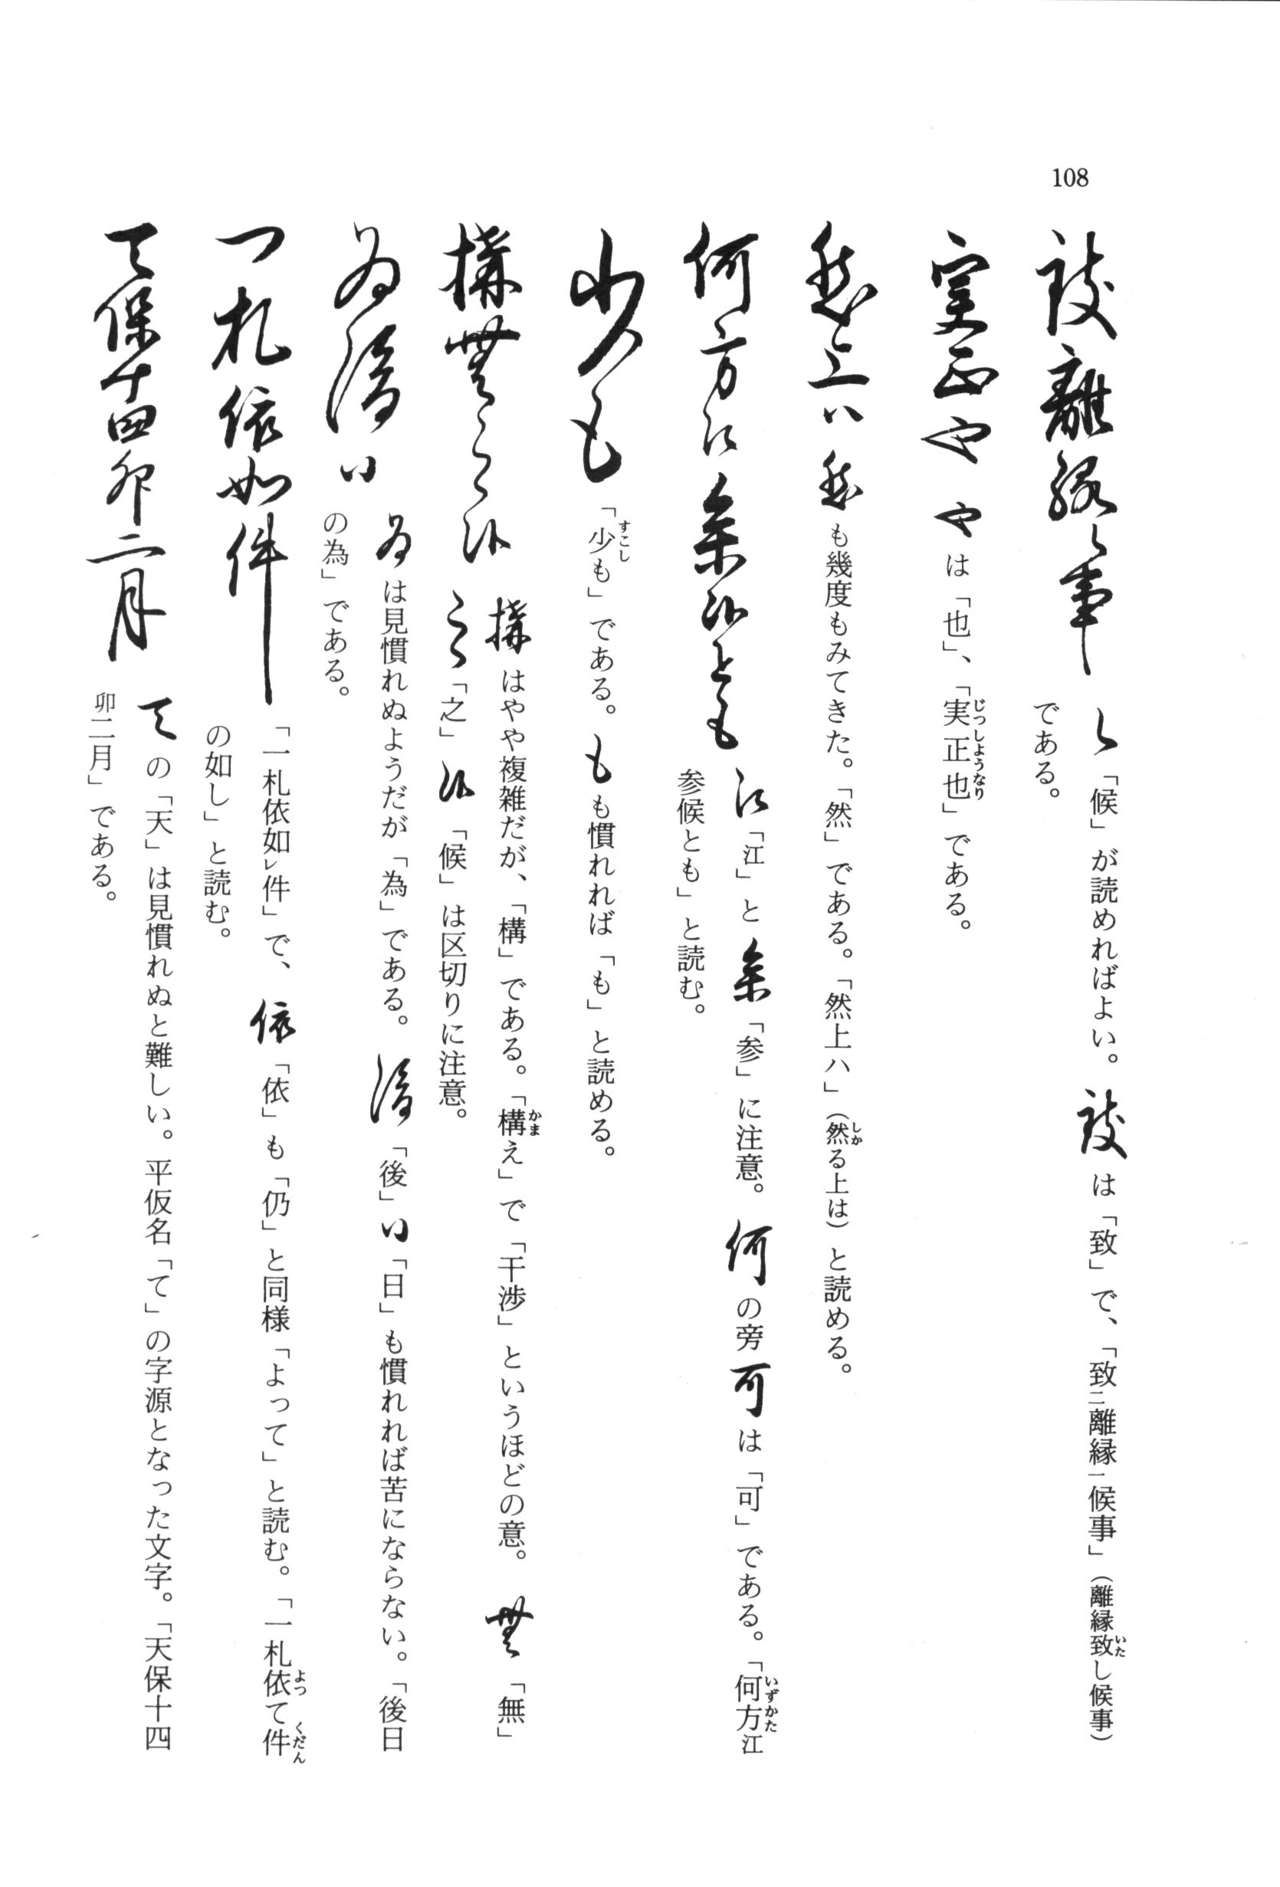 108
致離縁候事
候「候」が読めればよい。致は「致」で、「致㆓離縁㆒候事」（離縁致し候事）
である。
実正也
也は「也」、「実正也」である。
然上ハ
然も幾度もみてきた。「然」である。「然上ハ」（然る上は）と読める。
何方江参候とも
江「江」と参「参」に注意。何の旁可は「可」である。「何方江
参候とも」と読む。
少も
「少も」である。もも慣れれば「も」と読める。
構無之候
構はやや複雑だが、「構」である。「構え」で「干渉」というほどの意。無「無」
之「之」候「候」は区切りに注意。
為後日
為は見慣れぬようだが「為」である。後「後」日「日」も慣れれば苦にならない。「後日
の為」である。
一札依如件
「一札依如㆑件」で、依「依」も「仍」と同様「よって」と読む。「一札依て件
の如し」と読む。
天保十四卯二月
天の「天」は見慣れぬと難しい。平仮名「て」の字源となった文字。「天保十四
卯二月」である。